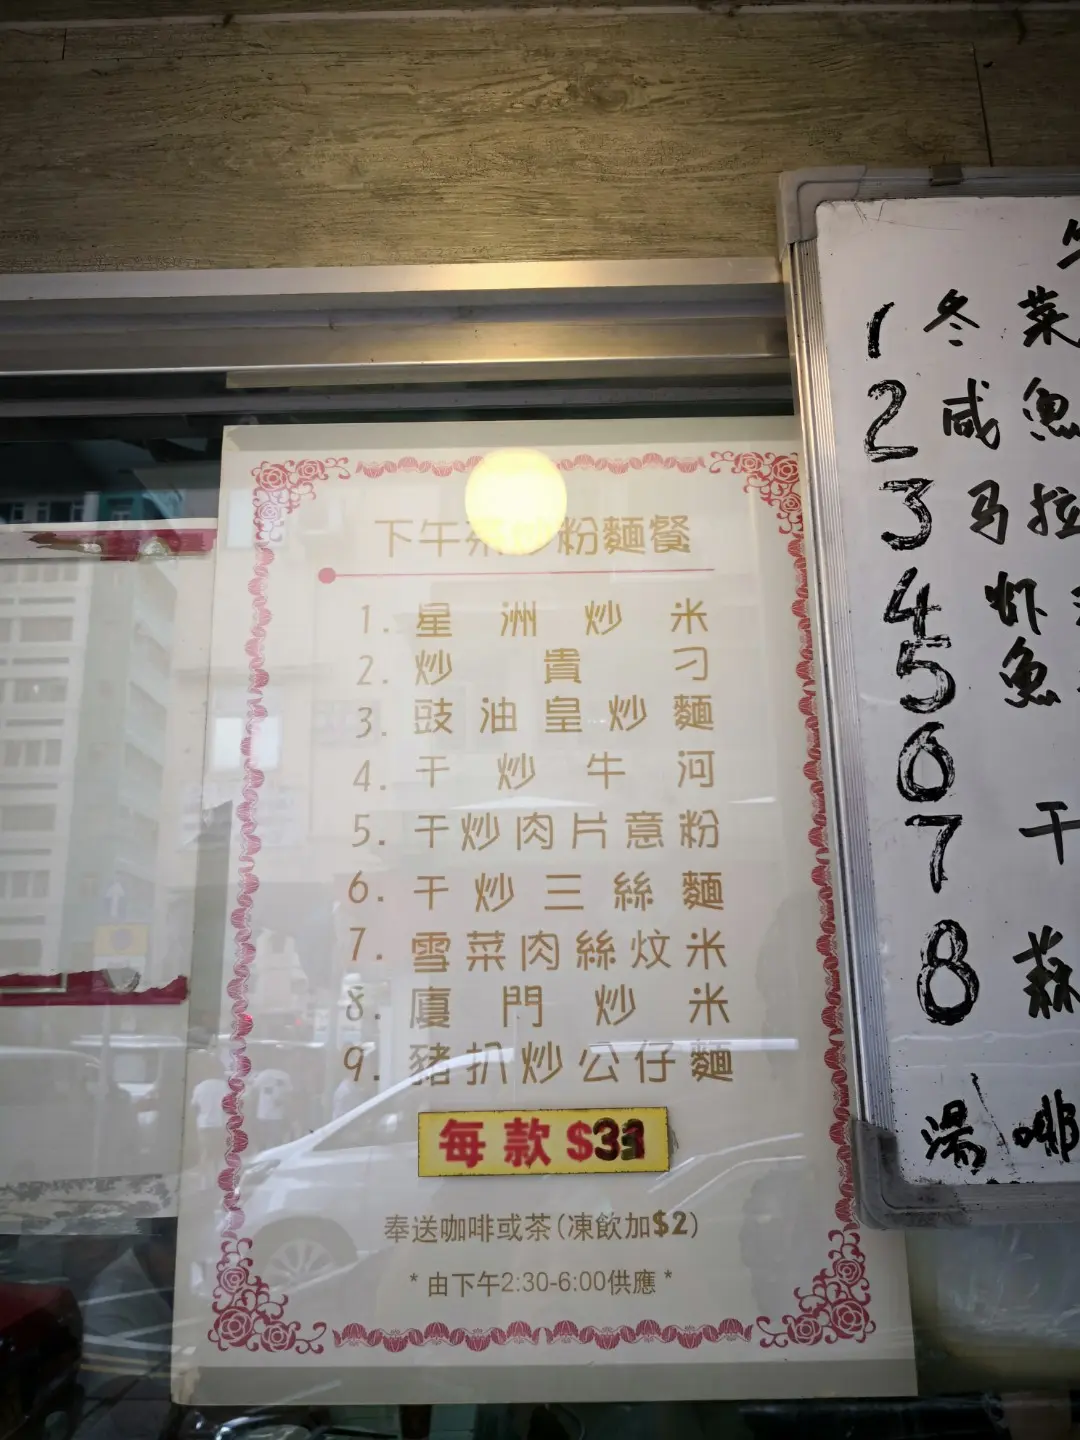 下午茶炒粉麵餐
1. 星洲炒米
2. 炒貴刁
3. 豉油皇炒麵
4. 干炒牛河
5. 干炒肉片意粉
6. 干炒三絲麵
7. 雪菜肉絲炆米
8. 廈門炒米
9. 豬扒炒公仔麵
每款 $33
奉送咖啡或茶(凍飲加$2)
*由下午2:30-6:00供應*
1 冬菜
2 咸魚
3 马拉
4 炸
5 魚
6
7 干
8 蒜
湯 啡